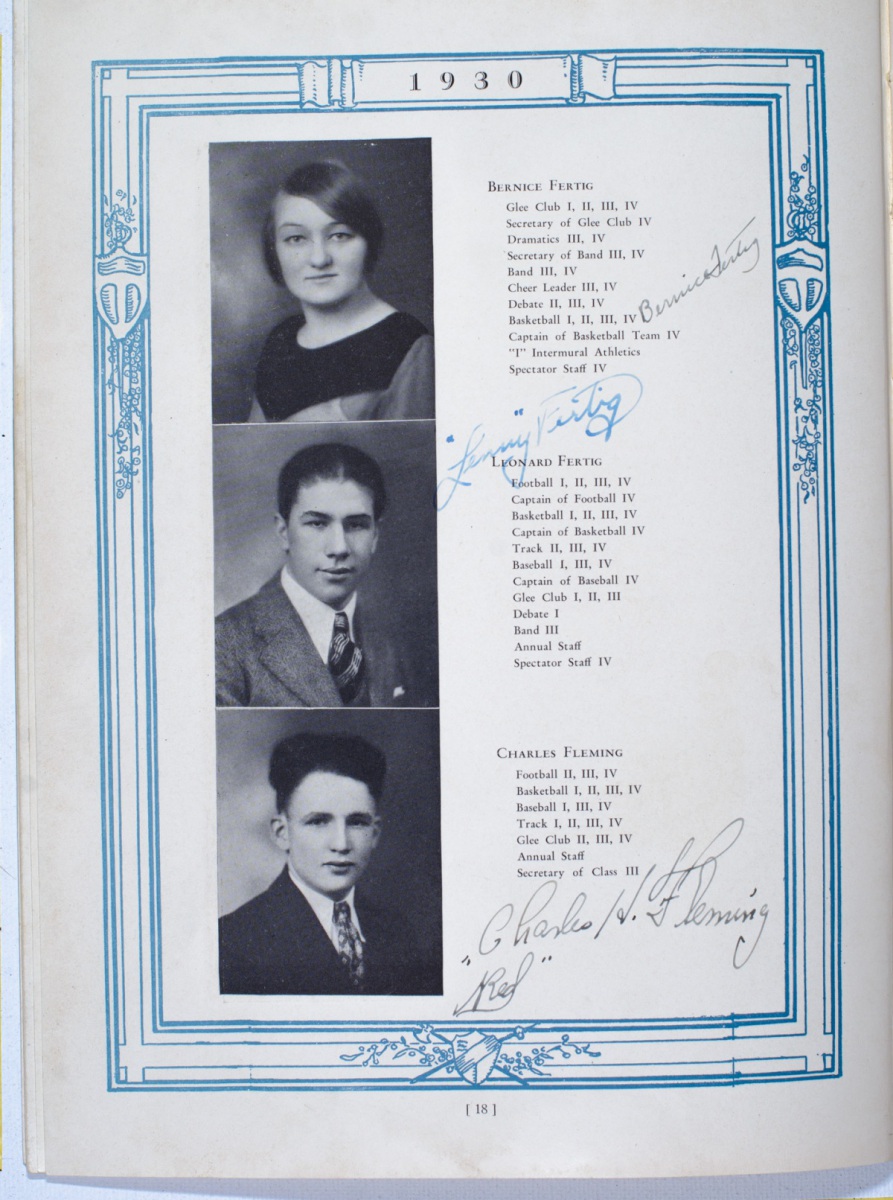 1930
BERNICE FERTIG
Glee Club I, II, III, IV
Secretary of Glee Club IV
Dramatics III, IV
Secretary of Band III, IV
Band III, IV
Cheer Leader III, IV
Debate II, III, IV
Basketball I, II, III, IV
Captain of Basketball Team IV
"I" Intermural Athletics
Spectator Staff IV
Bernice Fertig
"Lenny" Fertig
LEONARD FERTIG
Football I, II, III, IV
Captain of Football IV
Basketball I, II, III, IV
Captain of Basketball IV
Track II, III, IV
Baseball I, III, IV
Captain of Baseball IV
Glee Club I, II, III
Debate I
Band III
Annual Staff
Spectator Staff IV
CHARLES FLEMING
Football II, III, IV
Basketball I, II, III, IV
Baseball I, III, IV
Track I, II, III, IV
Glee Club II, III, IV
Annual Staff
Secretary of Class III
Charles H. Fleming
"Red"
[ 18 ]